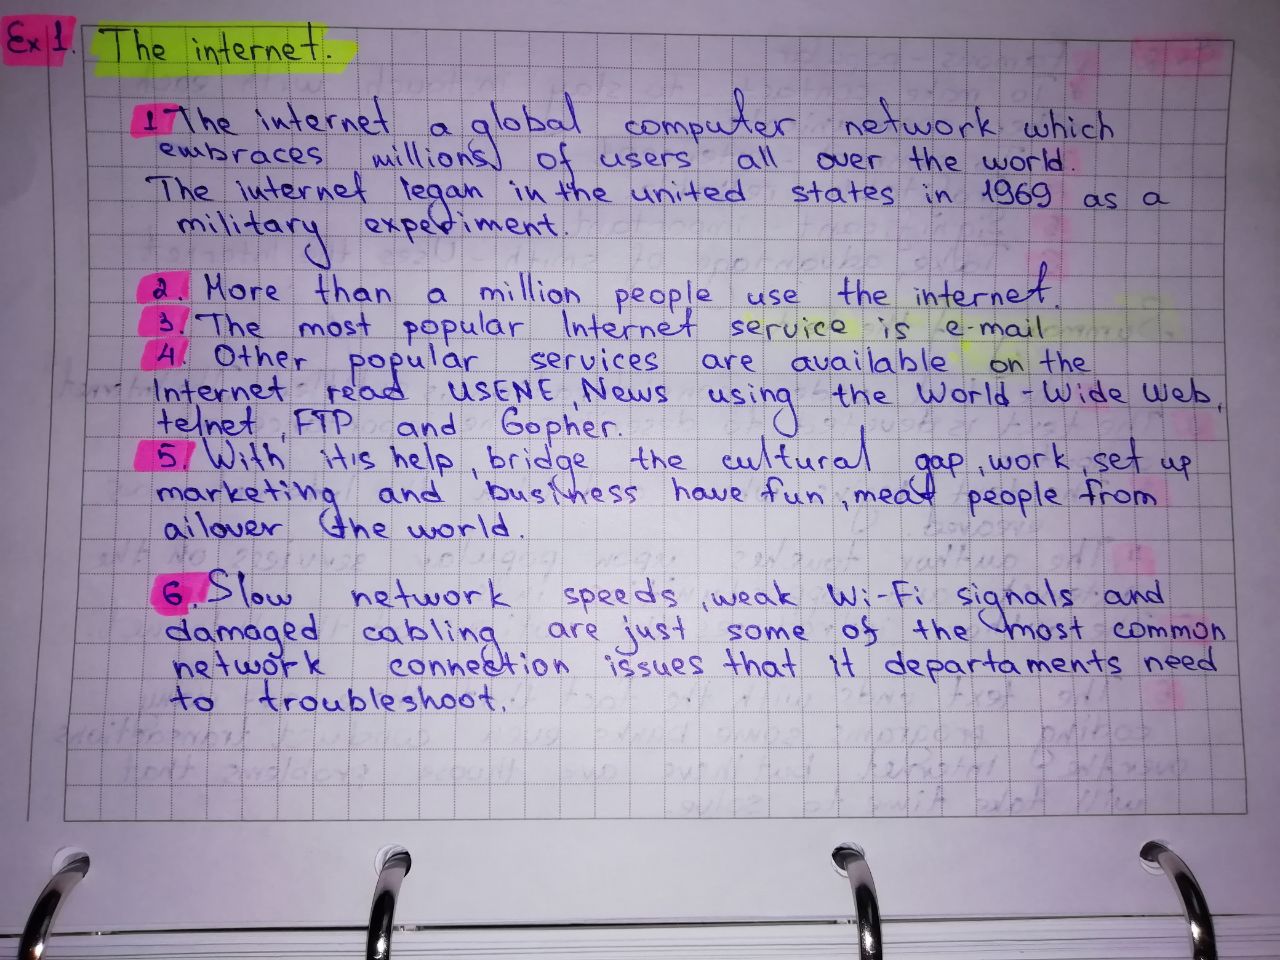 Ex 1. The internet.
1 The internet a global computer network which
embraces millions of users all over the world.
The internet legan in the united states in 1969 as a
military expediment.
2. More than a million people use the internet.
3. The most popular Internet service is e-mail
4. Other popular services are available on the
Internet read USENE, News using the World-Wide Web,
telnet, FTP and Gopher.
5. With itis help, bridge the cultural gap, work, set up
marketing and business have fun, meat people from
ailover the world.
6. Slow network speeds, weak Wi-Fi signals and
damaged cabling are just some of the most common
network connection issues that it departaments need
to troubleshoot.